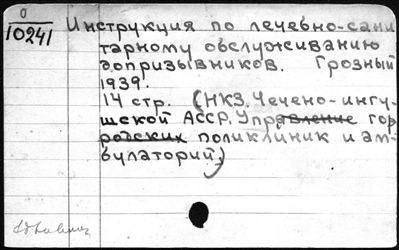 0
10241
Инструкция по лечебно-сани
тарному обслуживанию
допризывников. Грозный
1939.
14 стр. (НКЗ. Чечено-ингу-
шской АССР. Управление гор
родских поликлиник и ам-
булаторий)